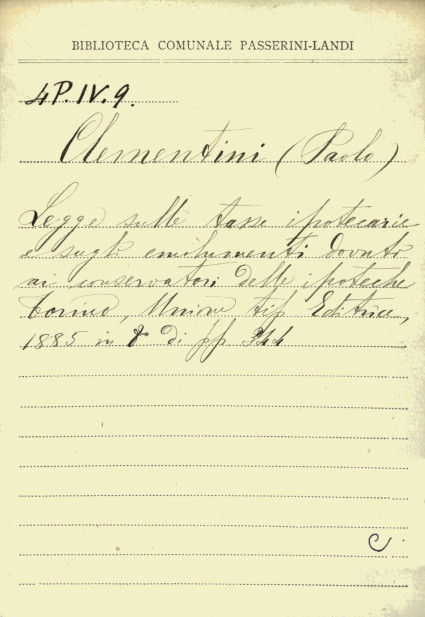 BIBLIOTECA COMUNALE PASSERINI-LANDI
4P.IV.9.
Clementini (Paolo)
Legge sulle tasse ipotecarie
e sugli emolumenti dovuti
ai conservatori delle ipoteche
Torino, Unione tip Editrice,
1885 in 8º di pp 344
C.